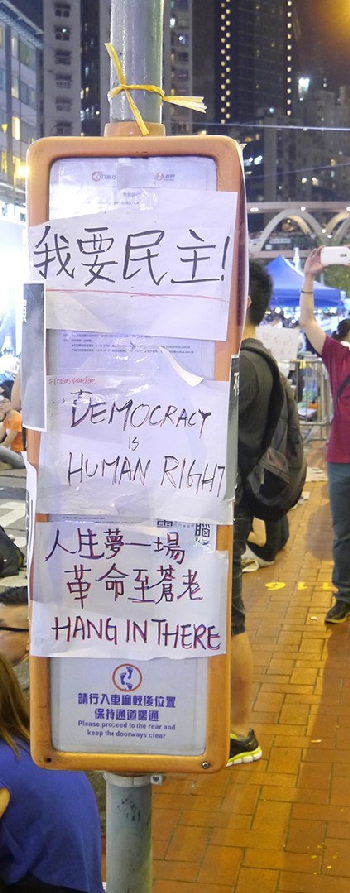 我要民主!
DEMOCRACY
IS
HUMAN RIGHT
人生夢一場
革命至蒼老
HANG IN THERE
請行入車廂較後位置
保持通道暢通
Please proceed to the rear and
keep the doorways clear